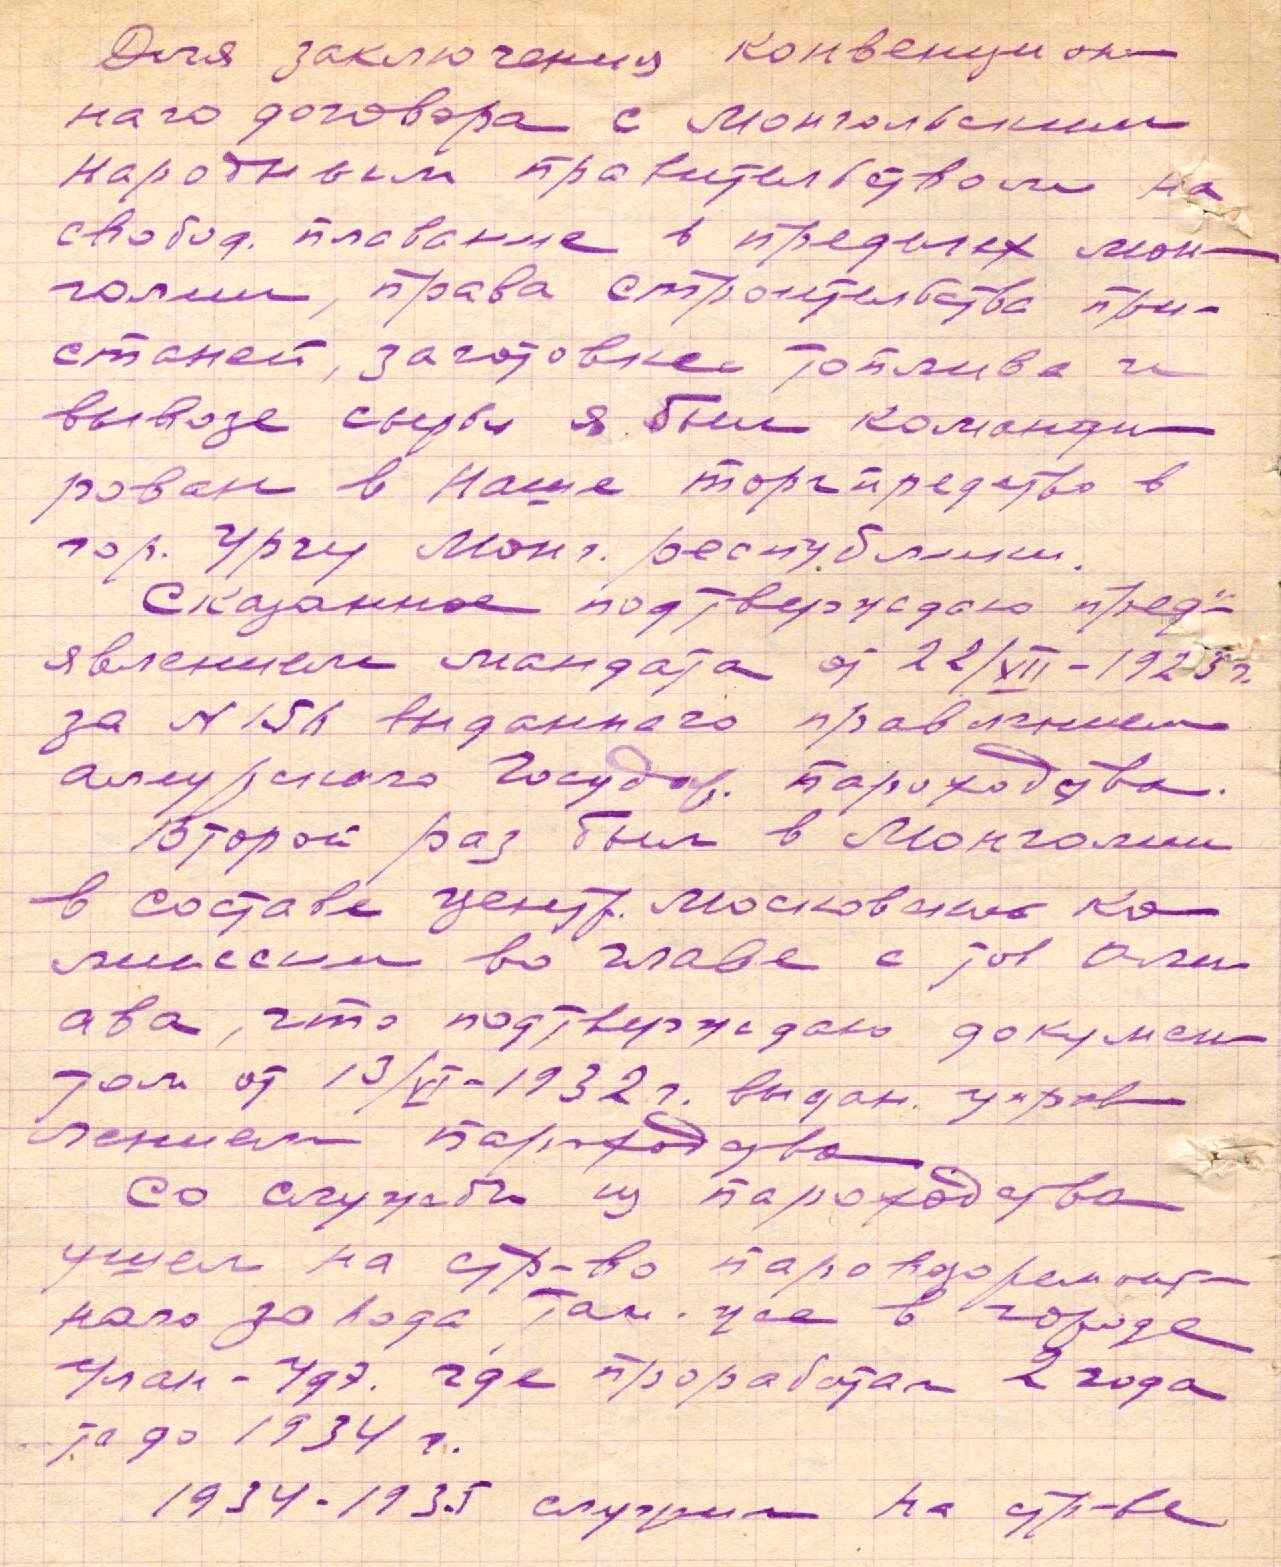 Для заключения конвенцион-
наго договора с Монгольским
народным правительством на
свобод. плавание в пределах мон-
голии, права строительства при-
станей, заготовке топлива и
вывозе сырья я был команди
рован в наше торгпредство в
гор. Ургу Монг. республики.
Сказанное подтверждаю пред"-
явлением мандата от 22/XII-1925г.
за N 156 выданнаго правлением
амурского Государ. пароходства.
Второй раз был в Монголии
в составе центр. московской ко-
миссии во главе с тов
ава, что подтверждаю докумен-
том от 13/VI-1932г. выдан. управ
лением пароходства
Со службы из пароходства
ушел на стр-во паровозоремонт-
наго завода, там-же в городе
Улан-Удэ. где проработал 2 года
до 1934 г.
1934-1935 служил на стр-ве